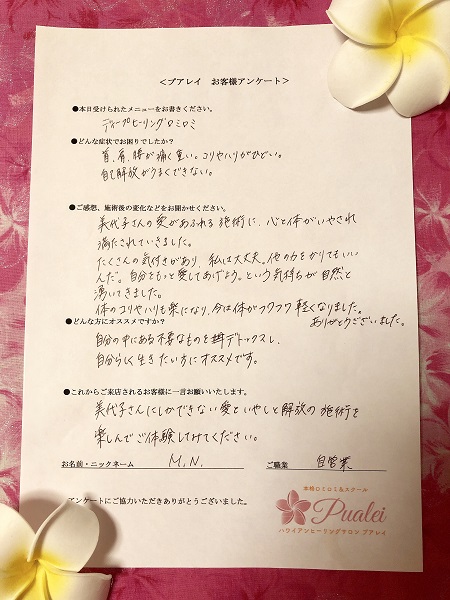 ＜プアレイ　お客様アンケート＞
●本日受けられたメニューをお書きください。
ディープヒーリングロミロミ
●どんな症状でお困りでしたか？
首、肩、腰が痛く重い。コリやハリがひどい。
自己解放がうまくできない。
●ご感想、施術後の変化などをお聞かせください。
美代子さんの愛があふれる施術に、心と体がいやされ
満たされていきました。
たくさんの気付きがあり、私は大丈夫。他の力をかりてもいい
んだ。自分をもっと愛してあげよう。という気持ちが自然と
湧いてきました。
体のコリやハリも楽になり、今は体がフワフワ軽くなりました。
ありがとうございました。
●どんな方にオススメですか？
自分の中にある不要なものをデトックスし、
自分らしく生きたい方にオススメです。
●これからご来店されるお客様に一言お願いいたします。
美代子さんにしかできない愛といやしと解放の施術を
楽しんでご体験してみてください。
お名前・ニックネーム　M.N.　ご職業　自営業
アンケートにご協力いただきありがとうございました。
本格ロミロミ&スクール
Pualei
ハワイアンヒーリングサロン プアレイ